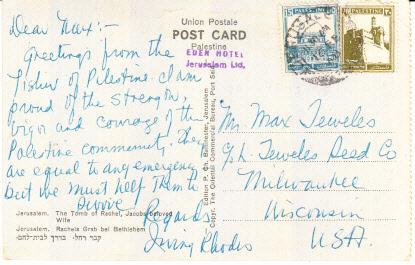 Union Postale
POST CARD
Palestine
EDEN HOTEL
Jerusalem Ltd.
PALESTINE
PALESTINE
Dear Max:-
Greetings from the
Yishuv of Palestine. I am
proud of the strength,
vigor and courage of the
Palestine community. They
are equal to any emergency
but we must help them to
survive
Regards
Irving Rhodes
Mr. Max Teweles
c/o L. Teweles Seed Co
Milwaukee
Wisconsin
U.S.A.
Jerusalem. The Tomb of Rachel, Jacobs beloved
Wife
Jerusalem. Rachels Grab bei Bethlehem
קבר רחל. בדרך לבית-לחם